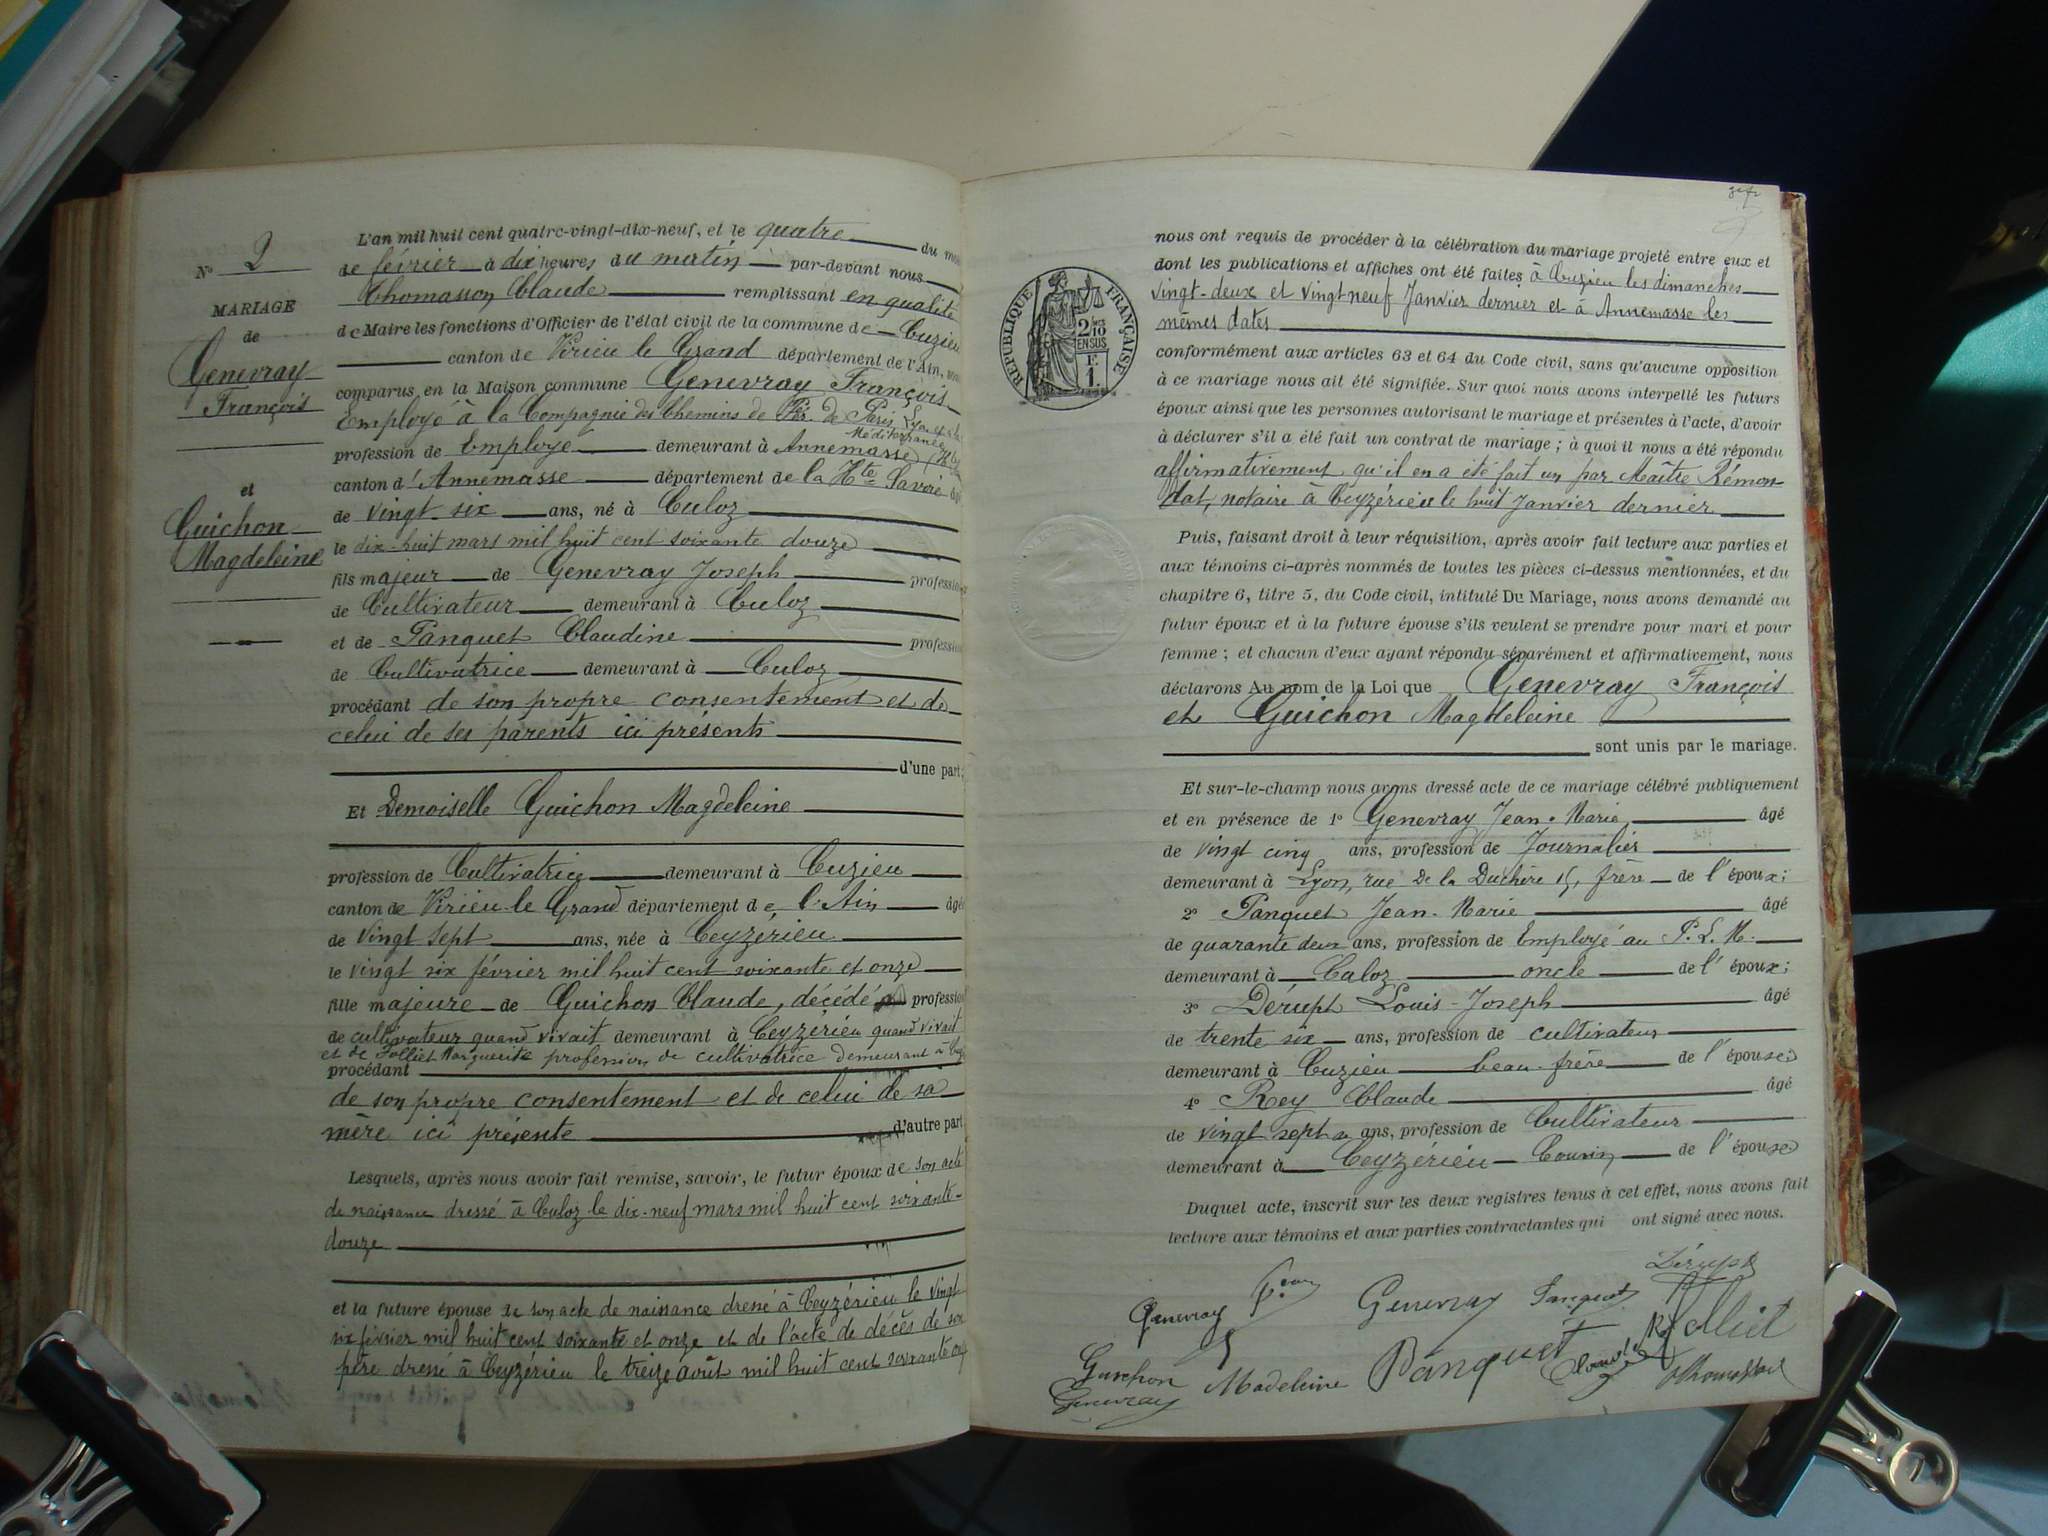 N° 2
MARIAGE
de
Genevray
François
et
Guichon
Magdeleine
L'an mil huit cent quatre-vingt-dix-neuf, et le quatre du
de février à dix heures du matin par-devant nous
Thomasson Claude remplissant en qualité
de Maire les fonctions d'Officier de l'état civil de la commune de Cuzieu
canton de Virieu le Grand département de l'Ain,
comparus, en la Maison commune Genevray François
Employé à la Compagnie des Chemins de Fer de Paris, Lyon et à la
Méditerranée
profession de Employé demeurant à Annemasse
canton d'Annemasse département de la Hte Savoie
de vingt-six ans, né à Culoz
le dix-huit mars mil huit cent soixante douze
fils majeur de Genevray Joseph profession
de Cultivateur demeurant à Culoz
et de Panquet Claudine profession
de Cultivatrice demeurant à Culoz
procédant de son propre consentement et de
celui de ses parents ici présents
d'une part;
Et Demoiselle Guichon Magdeleine
profession de Cultivatrice demeurant à Cuzieu
canton de Virieu le Grand département de l'Ain âgé
de vingt sept ans, née à Ceyzérieu
le vingt six février mil huit cent soixante et onze
fille majeure de Guichon Claude, décédé profession
de cultivateur quand vivait demeurant à Ceyzérieu quand vivait
et de Folliet Marguerite profession de cultivatrice demeurant à
procédant
de son propre consentement et de celui de sa
mère ici présente d'autre part
Lesquels, après nous avoir fait remise, savoir, le futur époux de son acte
de naissance dressé à Culoz le dix-neuf mars mil huit cent soixante-
douze
et la future épouse de son acte de naissance dressé à Ceyzérieu le vingt
six février mil huit cent soixante et onze et de l'acte de décès de son
père dressé à Ceyzérieu le treize août mil huit cent soixante
RÉPUBLIQUE FRANÇAISE
2/10
EN SUS
F.
1.
nous ont requis de procéder à la célébration du mariage projeté entre eux et
dont les publications et affiches ont été faites à Cuzieu les dimanches
vingt-deux et vingt neuf Janvier dernier et à Annemasse les
mêmes dates
conformément aux articles 63 et 64 du Code civil, sans qu'aucune opposition
à ce mariage nous ait été signifiée. Sur quoi nous avons interpellé les futurs
époux ainsi que les personnes autorisant le mariage et présentes à l'acte, d'avoir
à déclarer s'il a été fait un contrat de mariage; à quoi il nous a été répondu
affirmativement qu'il en a été fait un par Maître Rémon
dat, notaire à Ceyzérieu le huit Janvier dernier
Puis, faisant droit à leur réquisition, après avoir fait lecture aux parties et
aux témoins ci-après nommés de toutes les pièces ci-dessus mentionnées, et du
chapitre 6, titre 5, du Code civil, intitulé Du Mariage, nous avons demandé au
futur époux et à la future épouse s'ils veulent se prendre pour mari et pour
femme; et chacun d'eux ayant répondu séparément et affirmativement, nous
déclarons Au nom de la Loi que Genevray François
et Guichon Magdeleine
sont unis par le mariage.
Et sur-le-champ nous avons dressé acte de ce mariage célébré publiquement
et en présence de 1° Genevray Jean-Marie, âgé
de vingt cinq ans, profession de Journalier
demeurant à Lyon, rue de la Duchère 15, frère de l'époux;
2° Panquet Jean-Marie âgé
de quarante deux ans, profession de Employé au P.L.M.
demeurant à Culoz oncle de l'époux;
3° Dérupt Louis-Joseph âgé
de trente six ans, profession de cultivateur
demeurant à Cuzieu beau-frère de l'épouse
4° Rey Claude âgé
de vingt sept ans, profession de Cultivateur
demeurant à Ceyzérieu Cousin de l'épouse
Duquel acte, inscrit sur les deux registres tenus à cet effet, nous avons fait
lecture aux témoins et aux parties contractantes qui ont signé avec nous.
Dérupt
Genevray Genevray Panquet
Folliet
Guichon Madeleine Panquet Claude Thomasson
Genevray